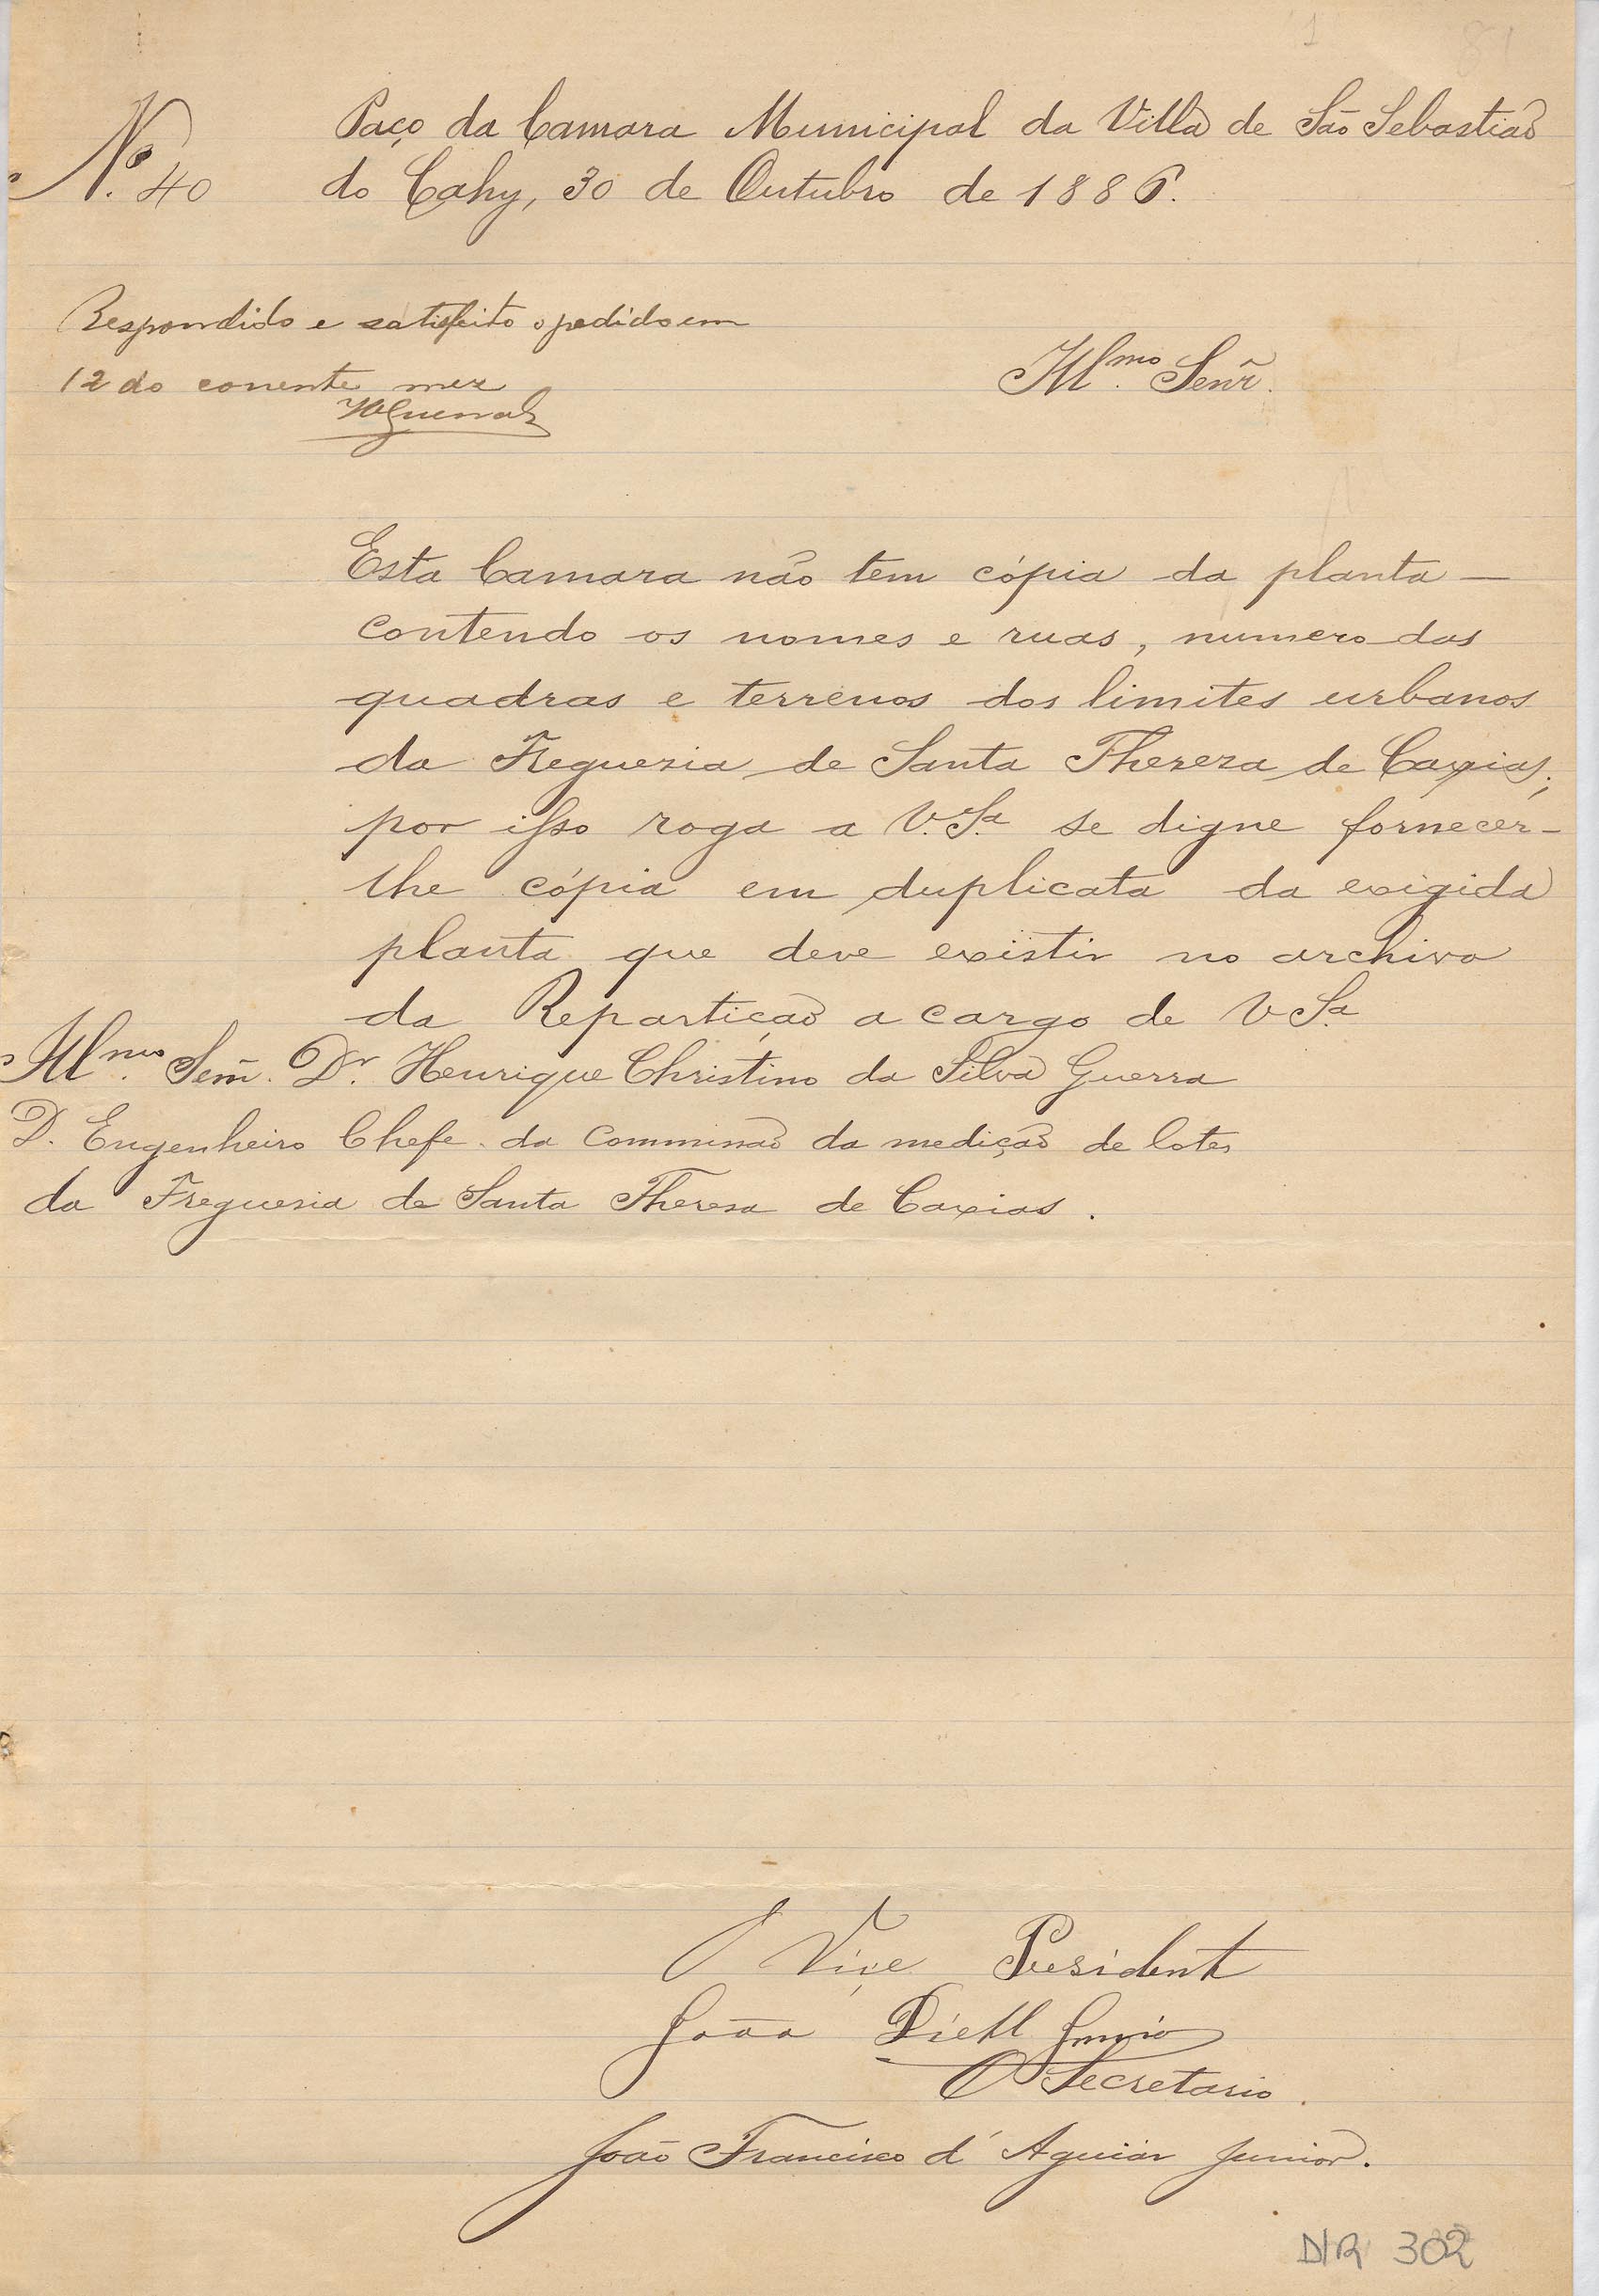 Nº. 40
Paço da Camara Municipal da Villa de São Sebastião
do Cahy, 30 de Outubro de 1886.
Respondido e satisfeito o pedido em
12 do corrente mez
HGuerra
Illmo. Senr.
Esta Camara não tem cópia da planta —
contendo os nomes e ruas, numero das
quadras e terrenos dos limites urbanos
da Freguezia de Santa Thereza de Caxias;
por isso roga a V. Sa. se digne fornecer-
lhe cópia em duplicata da exigida
planta que deve existir no archivo
da Repartição a cargo de V Sa.
Illmo. Senr. Dr. Henrique Christino da Silva Guerra
D. Engenheiro Chefe da Commissão da medição de lotes
da Freguesia de Santa Theresa de Caxias.
O Viçe President
João Diehl Junio
O Secretario.
João Francisco d'Aguiar Junior.
DIR 302